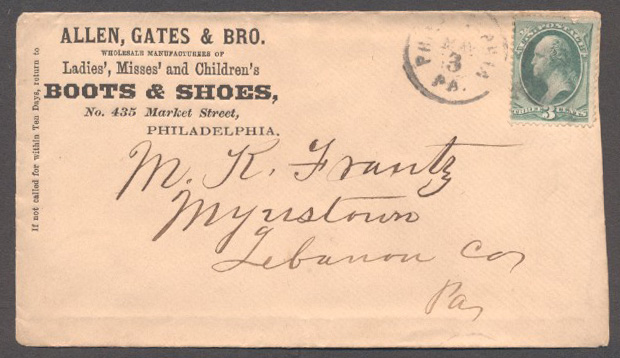 If not called for within Ten Days, return to
ALLEN, GATES & BRO.
WHOLESALE MANUFACTURERS OF
Ladies', Misses' and Children's
BOOTS & SHOES,
No. 435 Market Street,
PHILADELPHIA.
3
PA.
U.S. POSTAGE
THREE 3 CENTS
M. K. Frantz
Myerstown
Lebanon Co
Pa